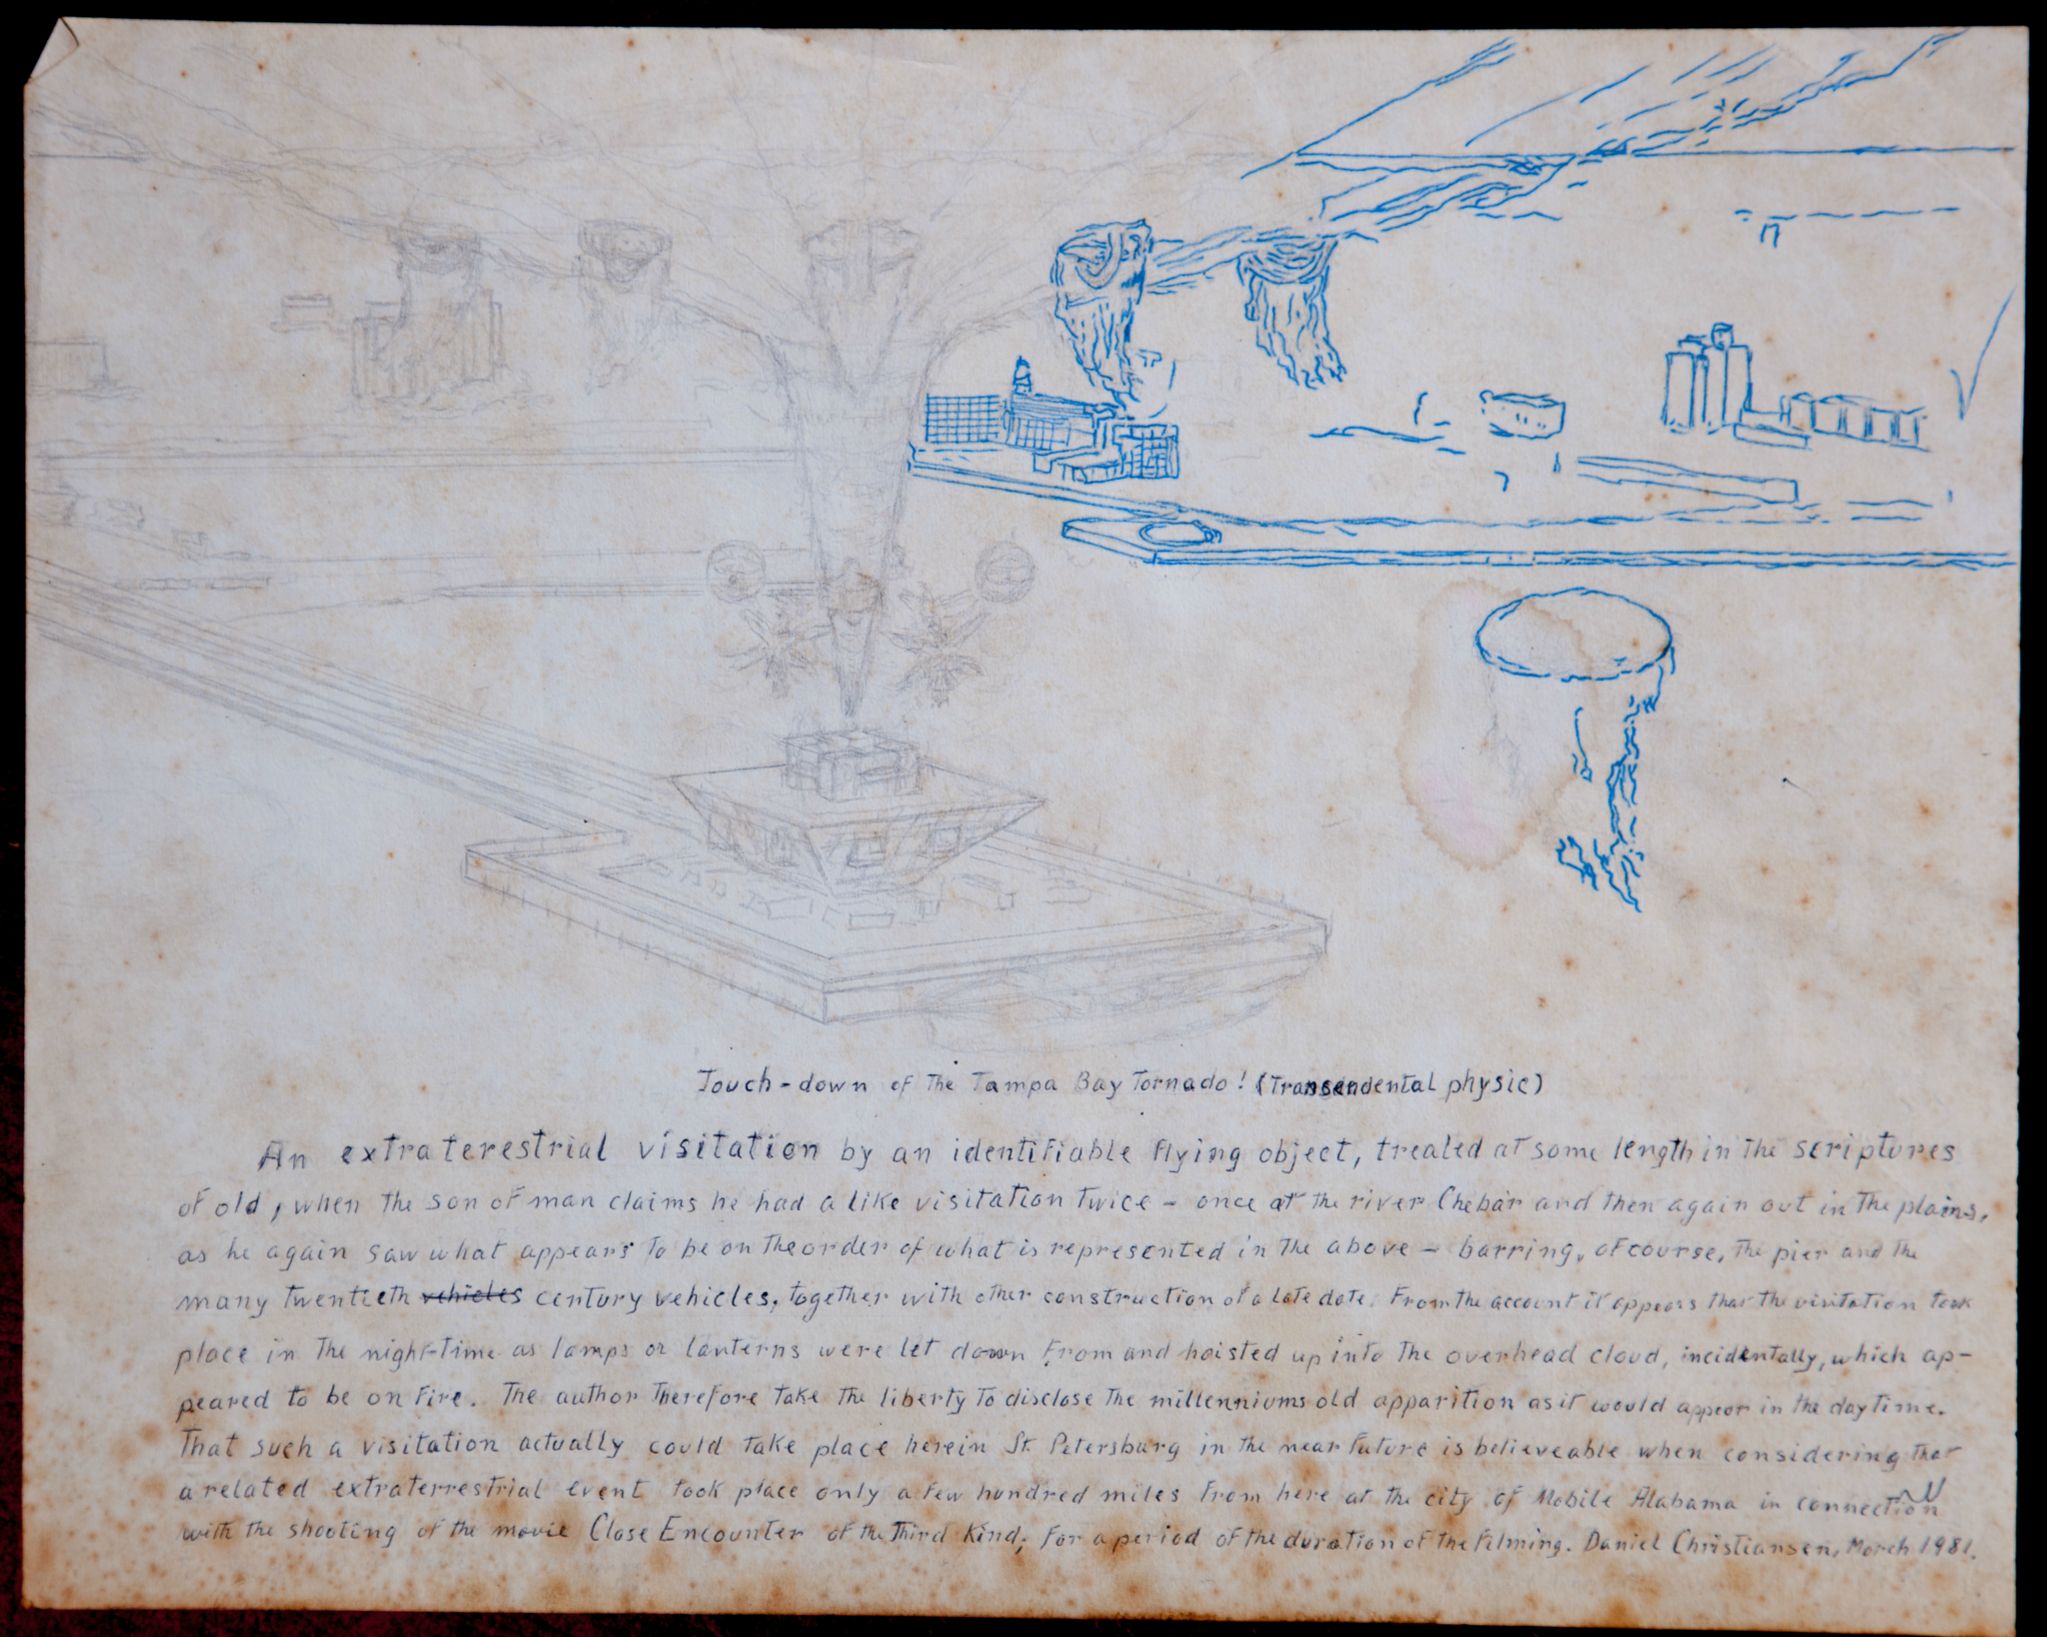 Touch-down of the Tampa Bay Tornado! (Transendental physic)
An extraterestrial visitation by an identifiable flying object, treated at some length in the scriptures
of old, when the son of man claims he had a like visitation twice – once at the river Chebar and then again out in the plains,
as he again saw what appears to be on the order of what is represented in the above – barring, of course, the pier and the
many twentieth vehicles century vehicles, together with other construction of a late date. From the account it appears that the visitation took
place in the night-time as lamps or lanterns were let down from and hoisted up into the overhead cloud, incidentally, which ap-
peared to be on fire. The author therefore take the liberty to disclose the millenniums old apparition as it would appear in the daytime.
That such a visitation actually could take place herein St. Petersburg in the near future is believeable when considering that
a related extraterrestrial event took place only a few hundred miles from here at the city of Mobile Alabama in connection
with the shooting of the movie Close Encounter of the Third Kind, for a period of the duration of the filming. Daniel Christiansen, March 1981.